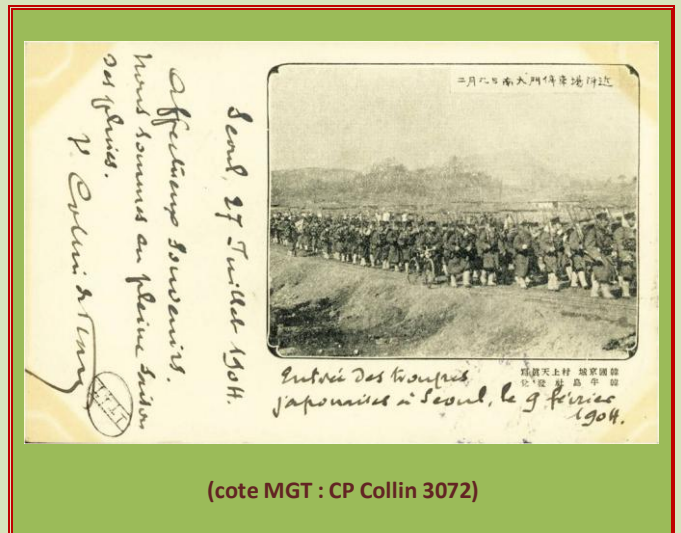 二月九日南大門停車場附近
Seoul, 27 Juillet 1904.
Affectueux souvenirs.
Nous sommes en pleine saison
des pluies.
V. Collin de Plancy
Entrée des troupes
japonaises à Seoul, le 9 février
1904.
(cote MGT : CP Collin 3072)